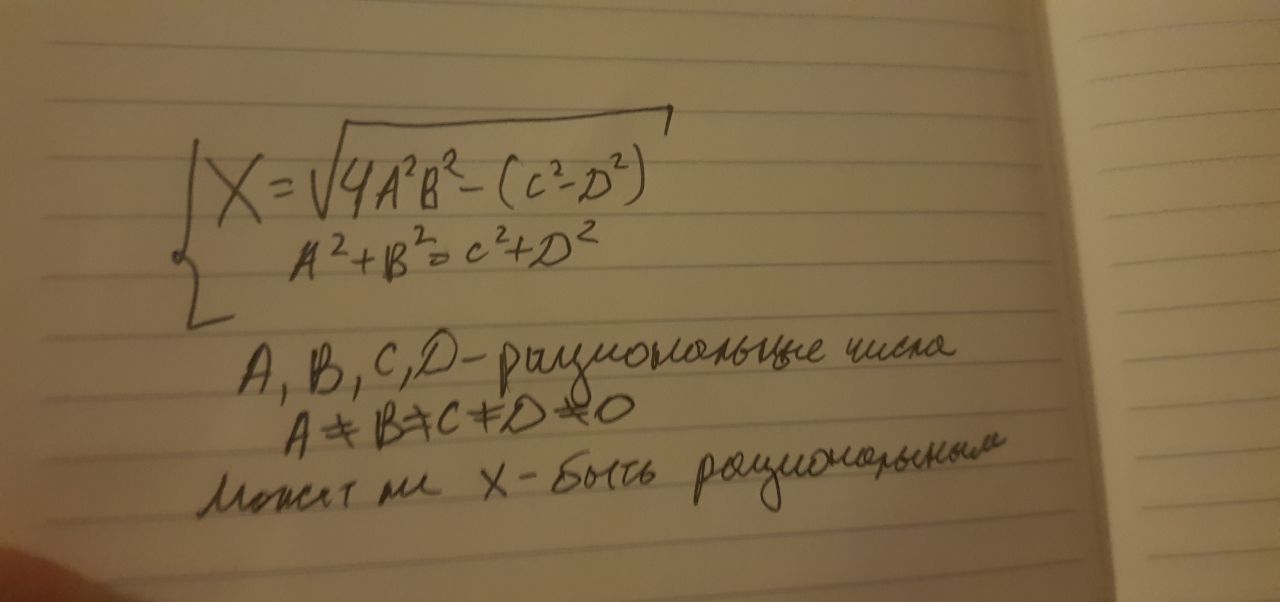 X = √4A²B² - (C² - D²)
A² + B² = C² + D²
A, B, C, D - рациональные числа
A ≠ B ≠ C ≠ D ≠ 0
Может ли X - быть рациональным